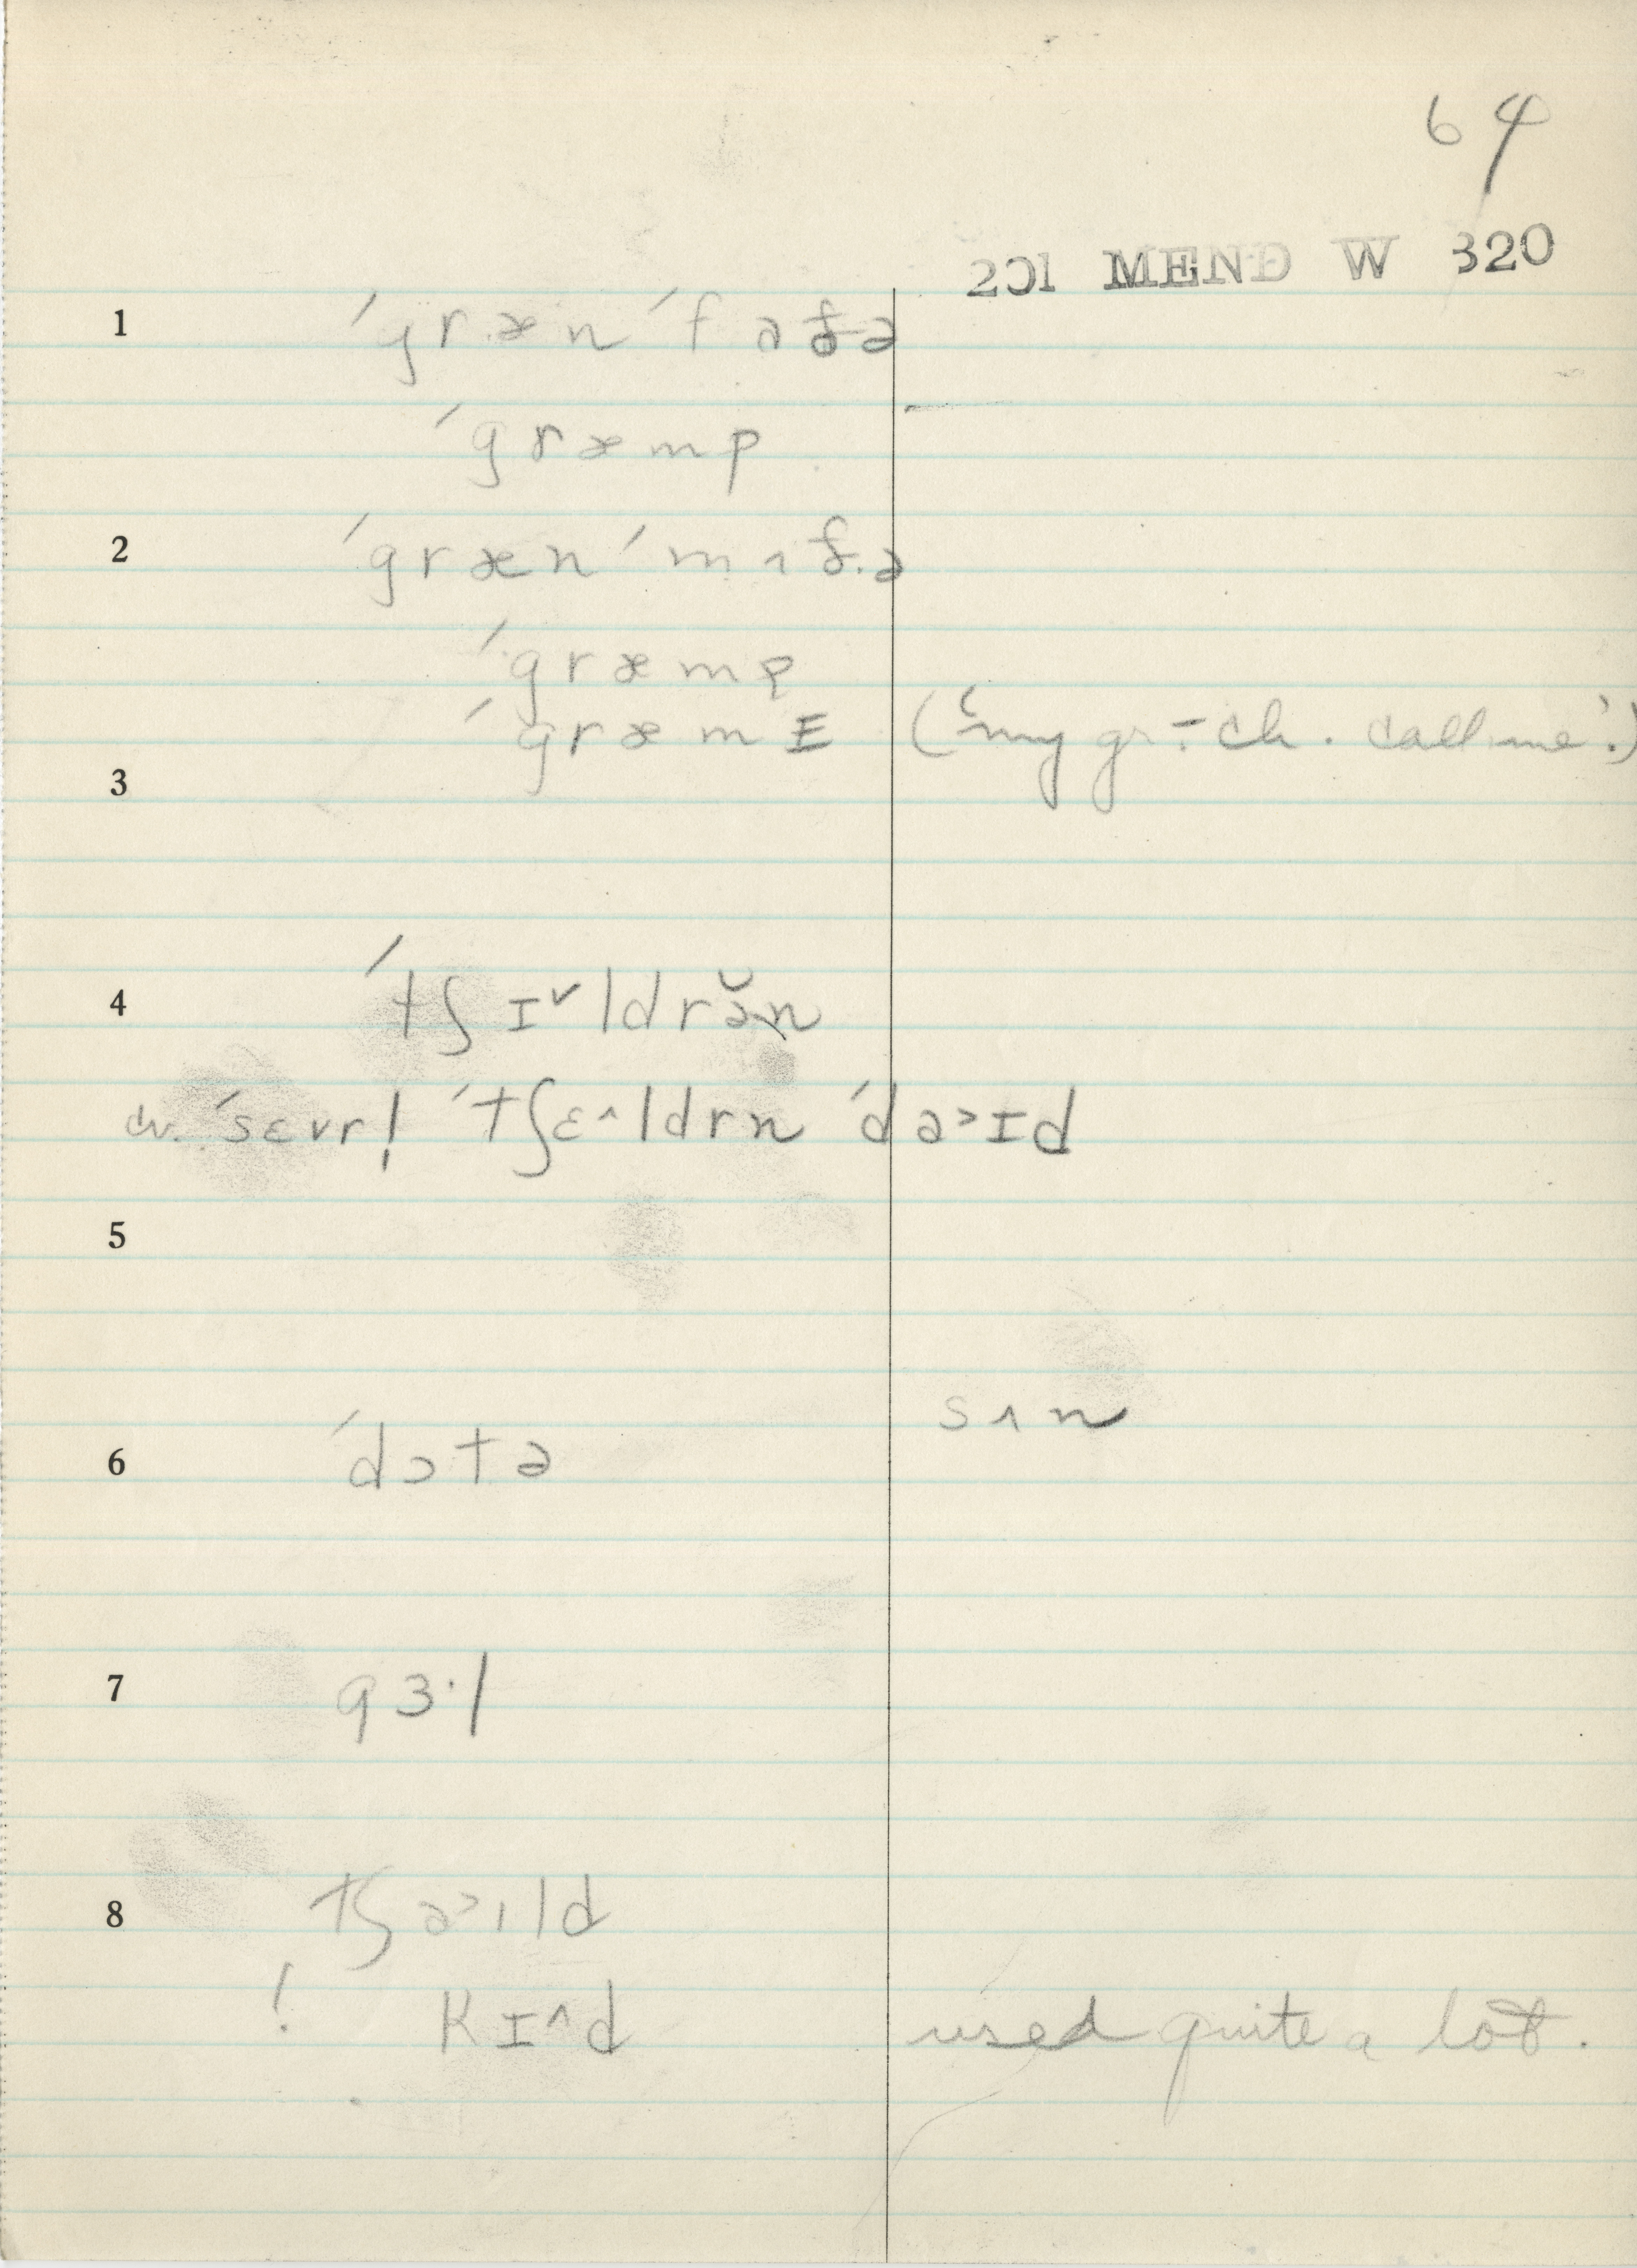 64
201 MEND W 320
1 ´græn´faðə
´græmp
2 ´græn´mʌðə
´græmp
´græmE (‘my gr-ch. call me’.)
3
4 ´tʃɪ˅ldrə̆n
cv. ´sɛvrl̩ ´tʃɛ^ldrn ´də˃ɪd
5
sʌn
6 ´dɔtə
7 gɜ·l
8 tʃə˃ɪld
! kɪ^d used quite a lot.